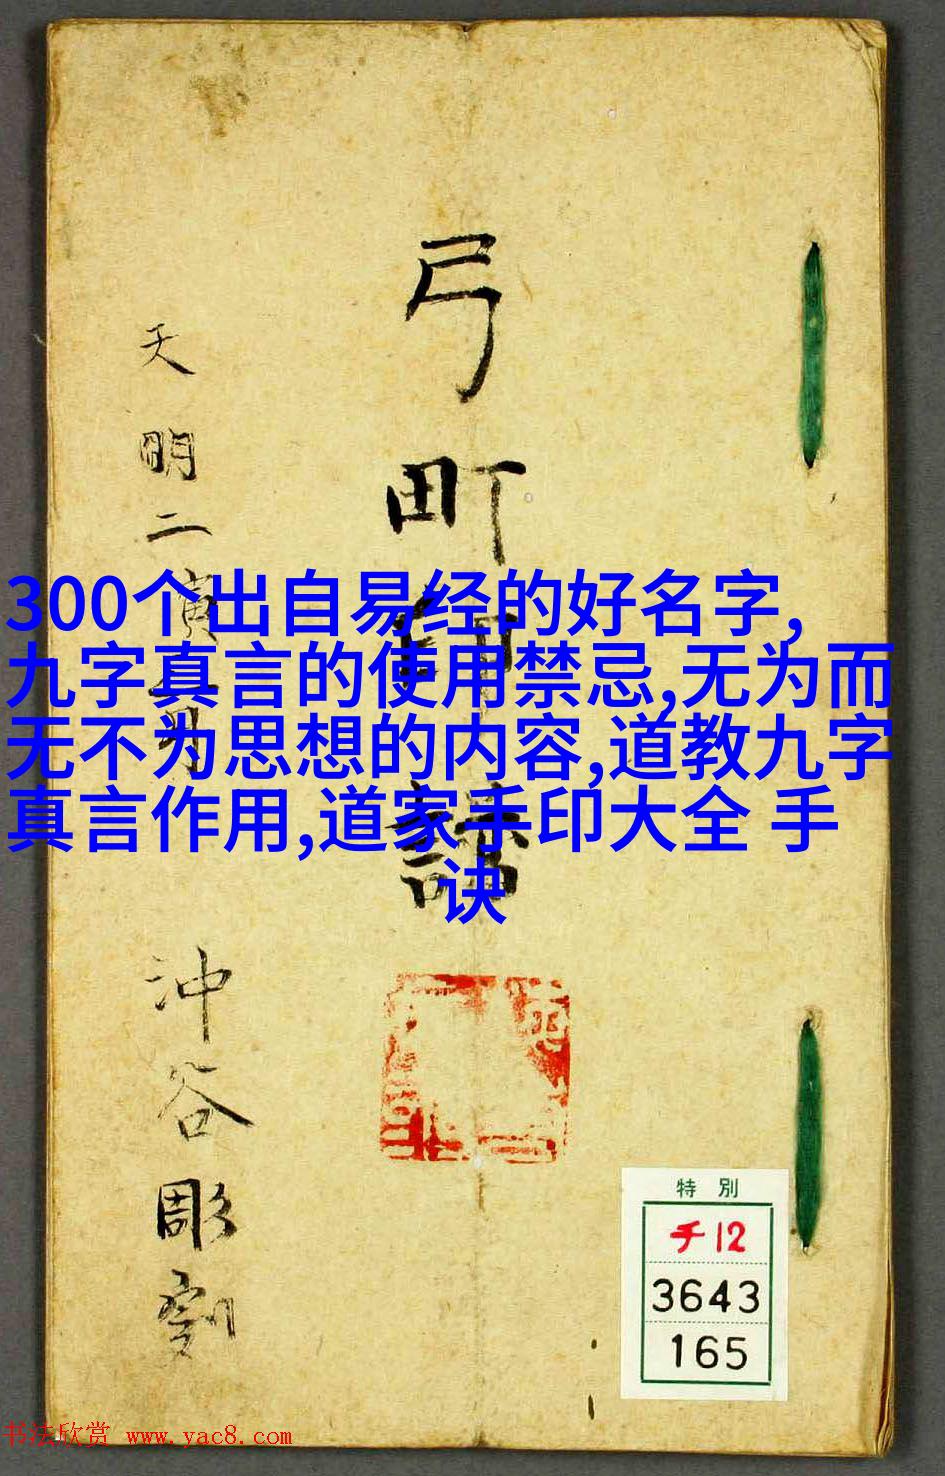 弓町印譜
天明二寅二月
沖谷彫刻
300个出自易经的好名字,
九字真言的使用禁忌,无为而
无不为思想的内容,道教九字
真言作用,道家手印大全 手
诀
特別
チ12
3643
165
书法欣赏 www.yac8.com